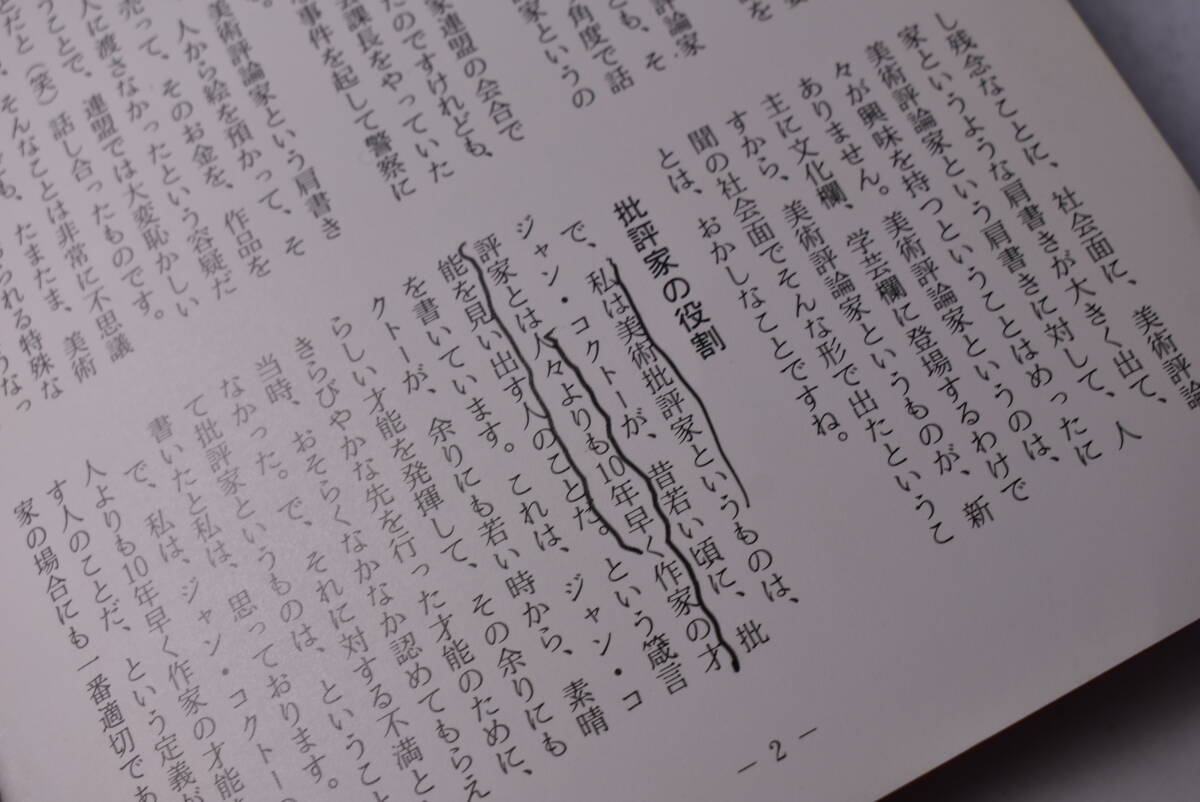 し残念なことに、社会面に、美術評論
家というような肩書きが大きく出て、
美術評論家という肩書きに対して、人
々が興味を持つということはめったに
ありません。美術評論家というのは、
主に文化欄、学芸欄に登場するわけで
すから、美術評論家というものが、新
聞の社会面でそんな形で出たというこ
とは、おかしなことですね。
批評家の役割
で、私は美術批評家というものは、
ジャン・コクトーが、昔若い頃に、批
評家とは人々よりも10年早く作家の才
能を見い出す人のことだ。という箴言
を書いています。これは、ジャン・コ
クトーが、余りにも若い時から、素晴
らしい才能を発揮して、その余りにも
きらびやかな先を行った才能のために、
当時、おそらくなかなか認めてもらえ
なかった。で、それに対する不満と
て批評家というものは、ということ
書いたと私は、思っております。
で、私は、ジャン・コクトーの
人よりも10年早く作家の才能
す人のことだ、という定義が
家の場合にも一番適切であ
を
評論家
とも、そ
角度で話
家というの
家連盟の会合で
たのですけれども、
会課長をやっていた
事件を起して警察に
美術評論家という肩書き
人から絵を預かって、そ
売って、そのお金を、作品を
人に渡さなかったという容疑だ
うことで、連盟では大変恥かしい
だと（笑）話し合ったものです。
そんなことは非常に不思議
も、たまたま、美術
られる特殊な
うなっ
－2－